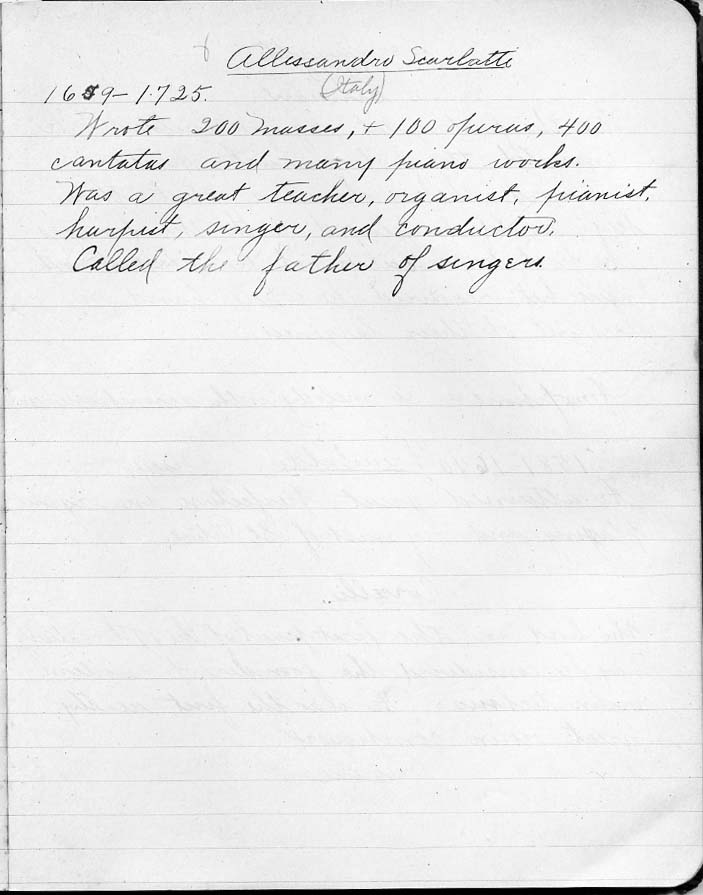 Allessandro Scarlatti
(Italy)
1659-1725.
Wrote 200 masses, + 100 operas, 400
cantatas and many piano works.
Was a great teacher, organist, pianist,
harpist, singer, and conductor.
Called the father of singers.